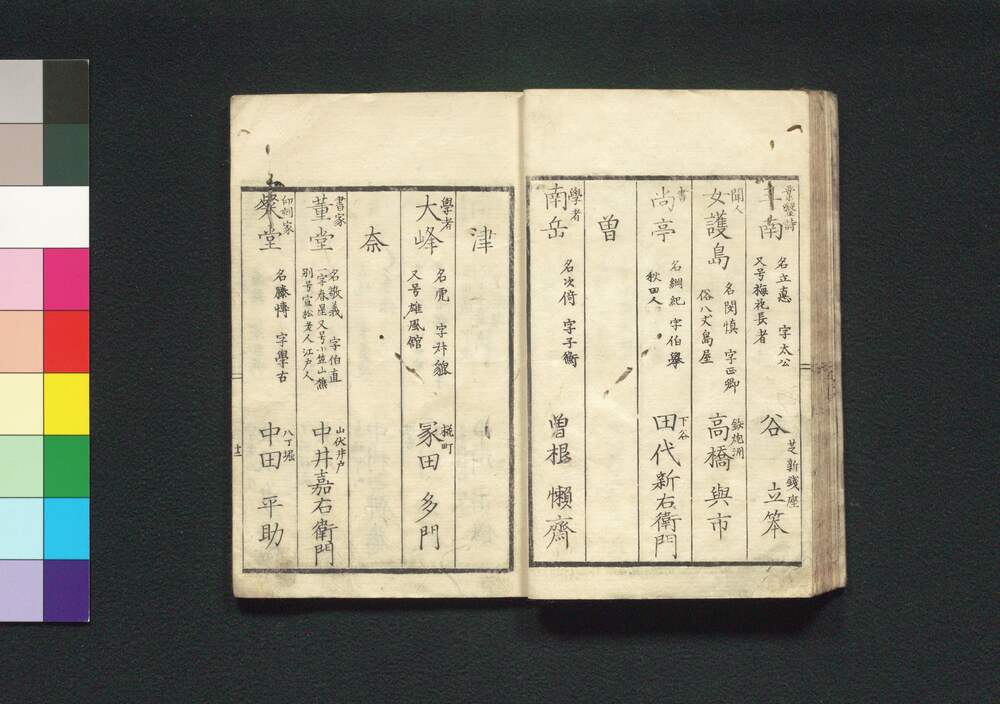 業毉詩
南
名立憙 字太公
又号梅花長者
芝新錢座
谷 立
聞人
女護島
名閔慎 字正卿
俗八丈島屋
鉄炮洲
高橋與市
書
尚亭
名綱紀 字伯擧
秋田人
下谷
田代新右衛門
曽
學者
南岳
名次倚 字子衡
曽根 懶齋
津
學者
大峰
名虎 字叔貔
又号雄風館
糀町
冢田 多門
奈
書家
董堂
名敬義 字伯直
一字春星又号小笠山樵
別号宣松老人江戸人
山伏井戸
中井嘉右衛門
印刻家
粲堂
名勝 字學古
八丁堀
中田 平助
十一